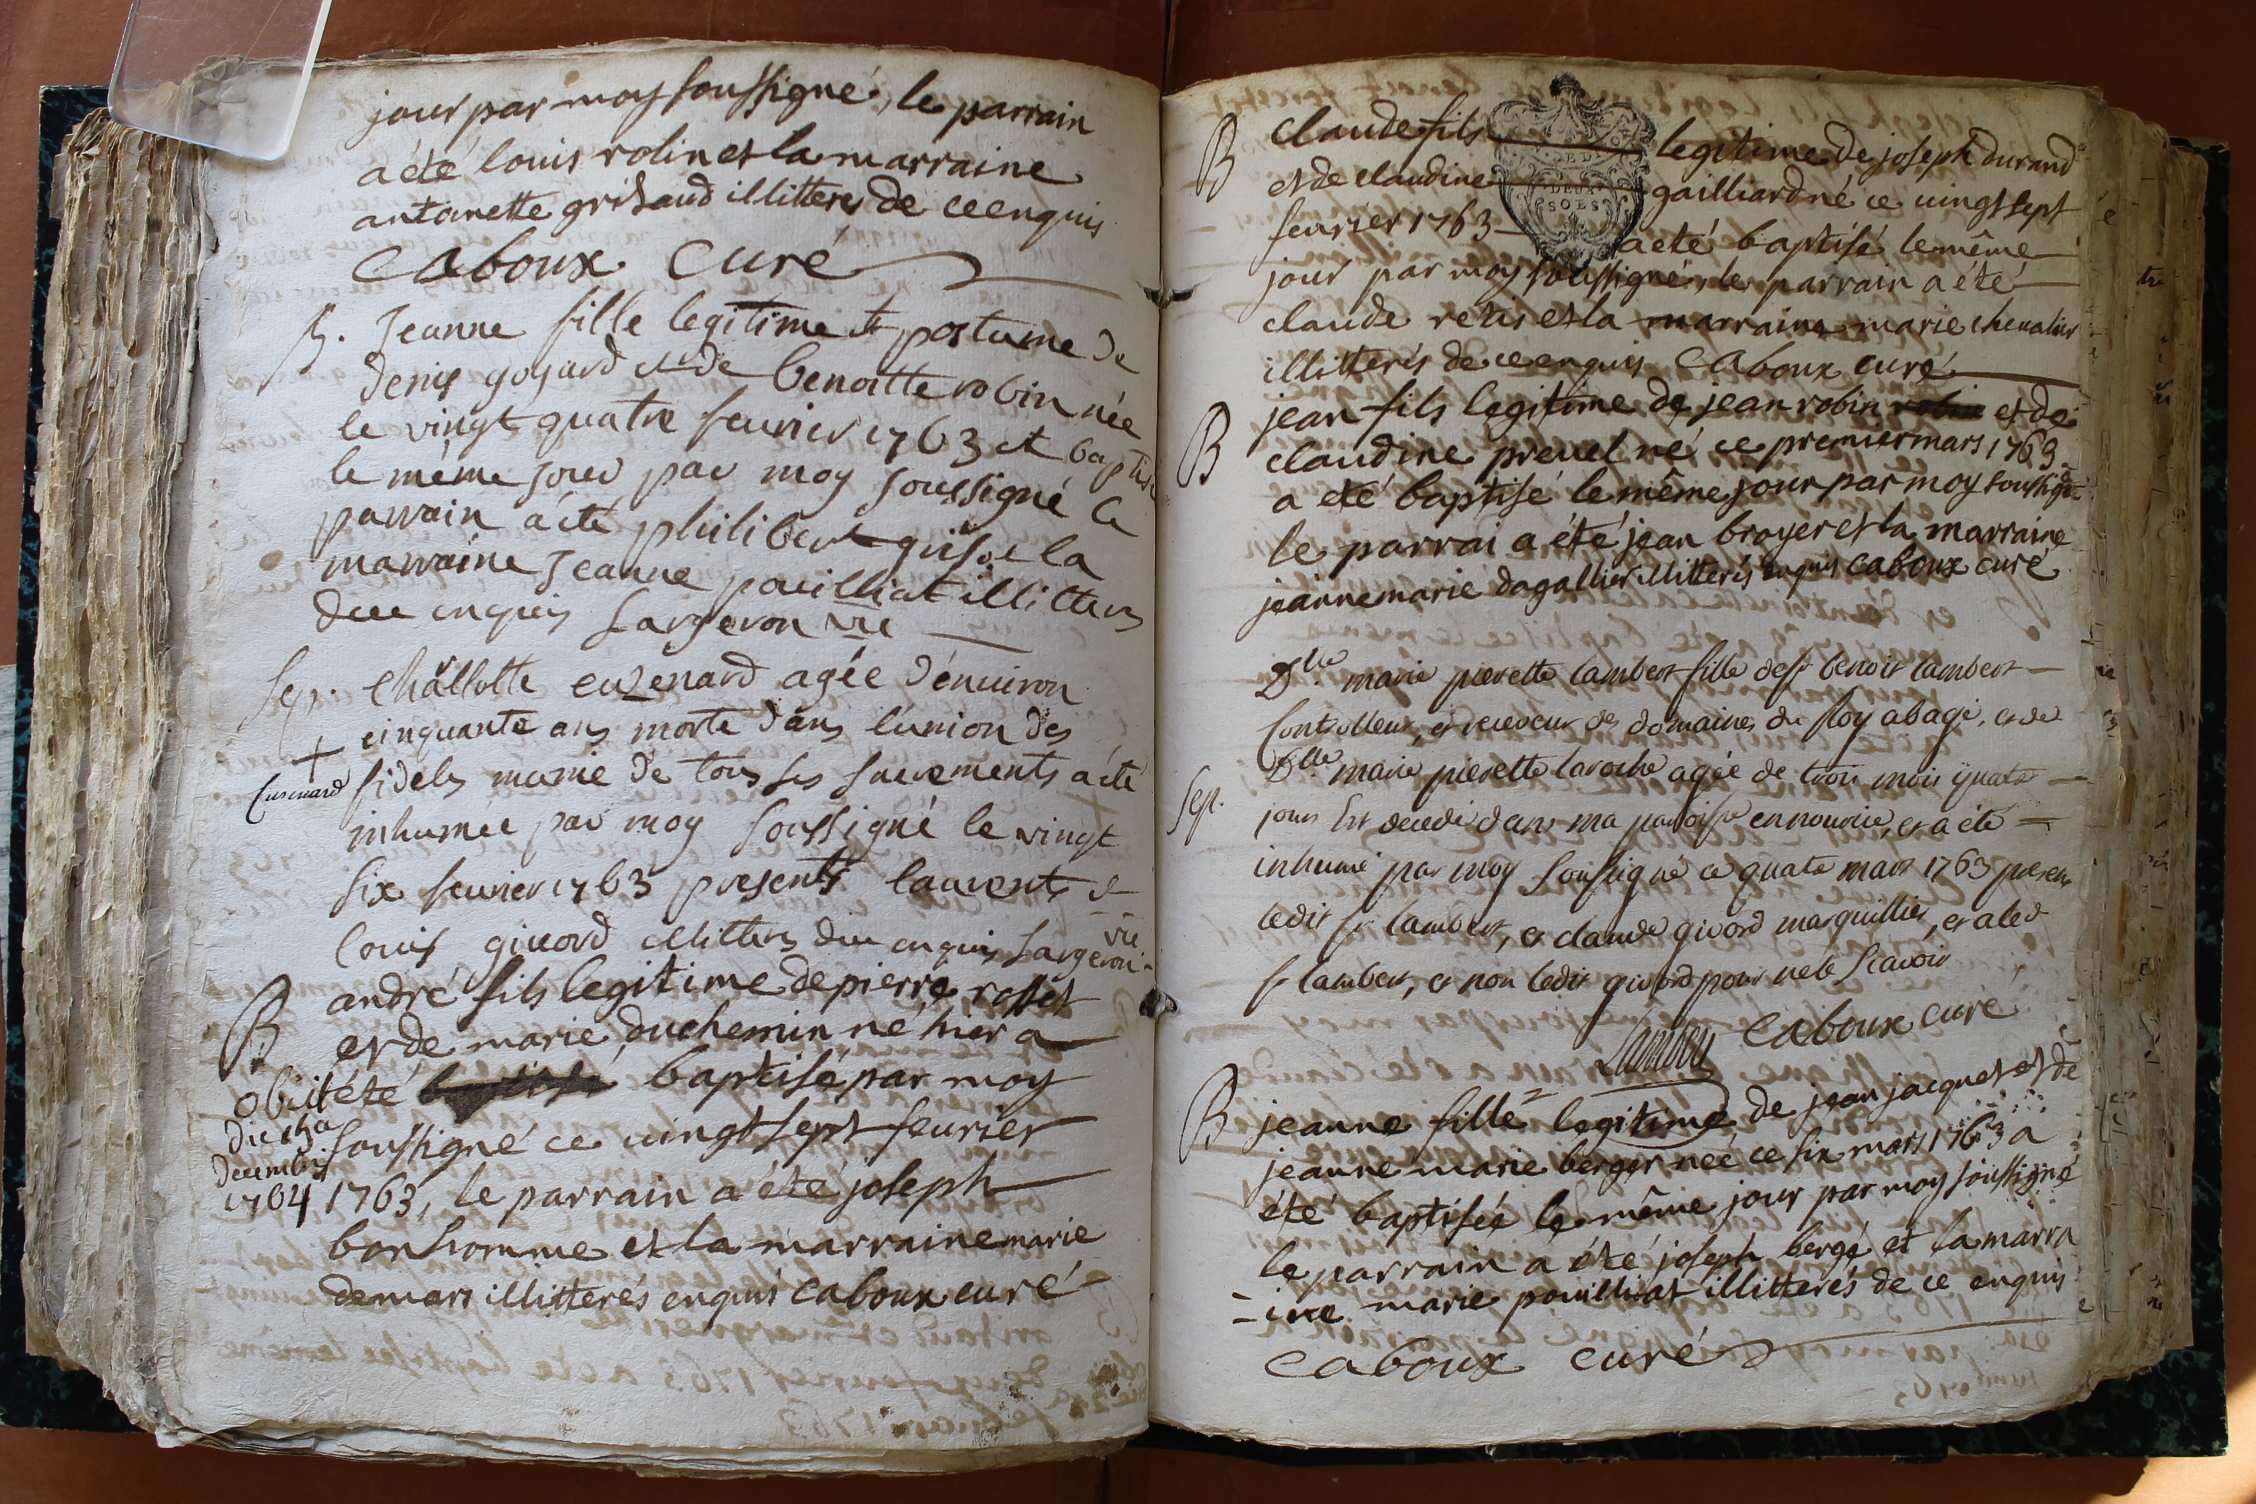 jour par moy soussigné, le parrain
a été louis rolin et la marraine
antoinette grisaud illitteres de ce enquis
Caboux Curé
B. Jeanne fille legitime et postume de
denis goyard et de benoitte robin née
le vingt quatre feurier 1763 et baptisé
le même jour par moy soussigné le
parrain a été philibert grisot la
marraine Jeanne pouilliat illitteres
de ce enquis Sargeron vic
Sep. Challotte cuzenard agée d'enuiron
cinquante ans morte dans l'union des
Cusenard fideles munie de tous ses sacrements a été
inhumée par moy soussigné le vingt
six feurier 1763 presents laurent et
louis giuord illitteres de ce enquis Sargeron vic
B andré fils legitime de pierre rosset
et de marie duchemin né hier a
obiit été baptisé par moy
die
soussigné ce uingt sept feurier
decembris
1764 1763, le parrain a été joseph
bonhomme et la marraine marie
demars illitterés enquis caboux curé
B claude fils legitime de joseph durand
et de claudine gailliard né ce uingt sept
feurier 1763 a eté baptisé le même
jour par moy soussigné, le parrain a été
claude retis et la marraine marie cheualier
illitterés de ce enquis Caboux curé
B jean fils legitime de jean robin et de
claudine preuel né ce premier mars 1763
a eté baptisé le même jour par moy soussigé
le parrai a été jean broyer et la marraine
jeanne marie dagallier illitterés enquis caboux curé
Dlle marie pierette lambert fille de sr benoit lambert
Controlleur, et receueur des domaines du Roy abagé, et de
Dlle marie pierette laroche agée de trois mois quatre
Sep. jours Est decedé dans ma paroisse en nourice, et a été
inhumé par moy Soussigné ce quatre mars 1763 presens
ledit sr lambert, et claude giuord marguillier, et a led
sr lambert, et non ledit giuord pour ne le Scauoir
Lambert Caboux curé
B jeanne fille legitime de jean jacquet et de
jeanne marie berger née ce six mars 1763 a
été baptisée le même jour par moy soussigné
le parrain a été joseph bergé et la marra
-ine marie pouilliat illitterés de ce enquis
caboux curé